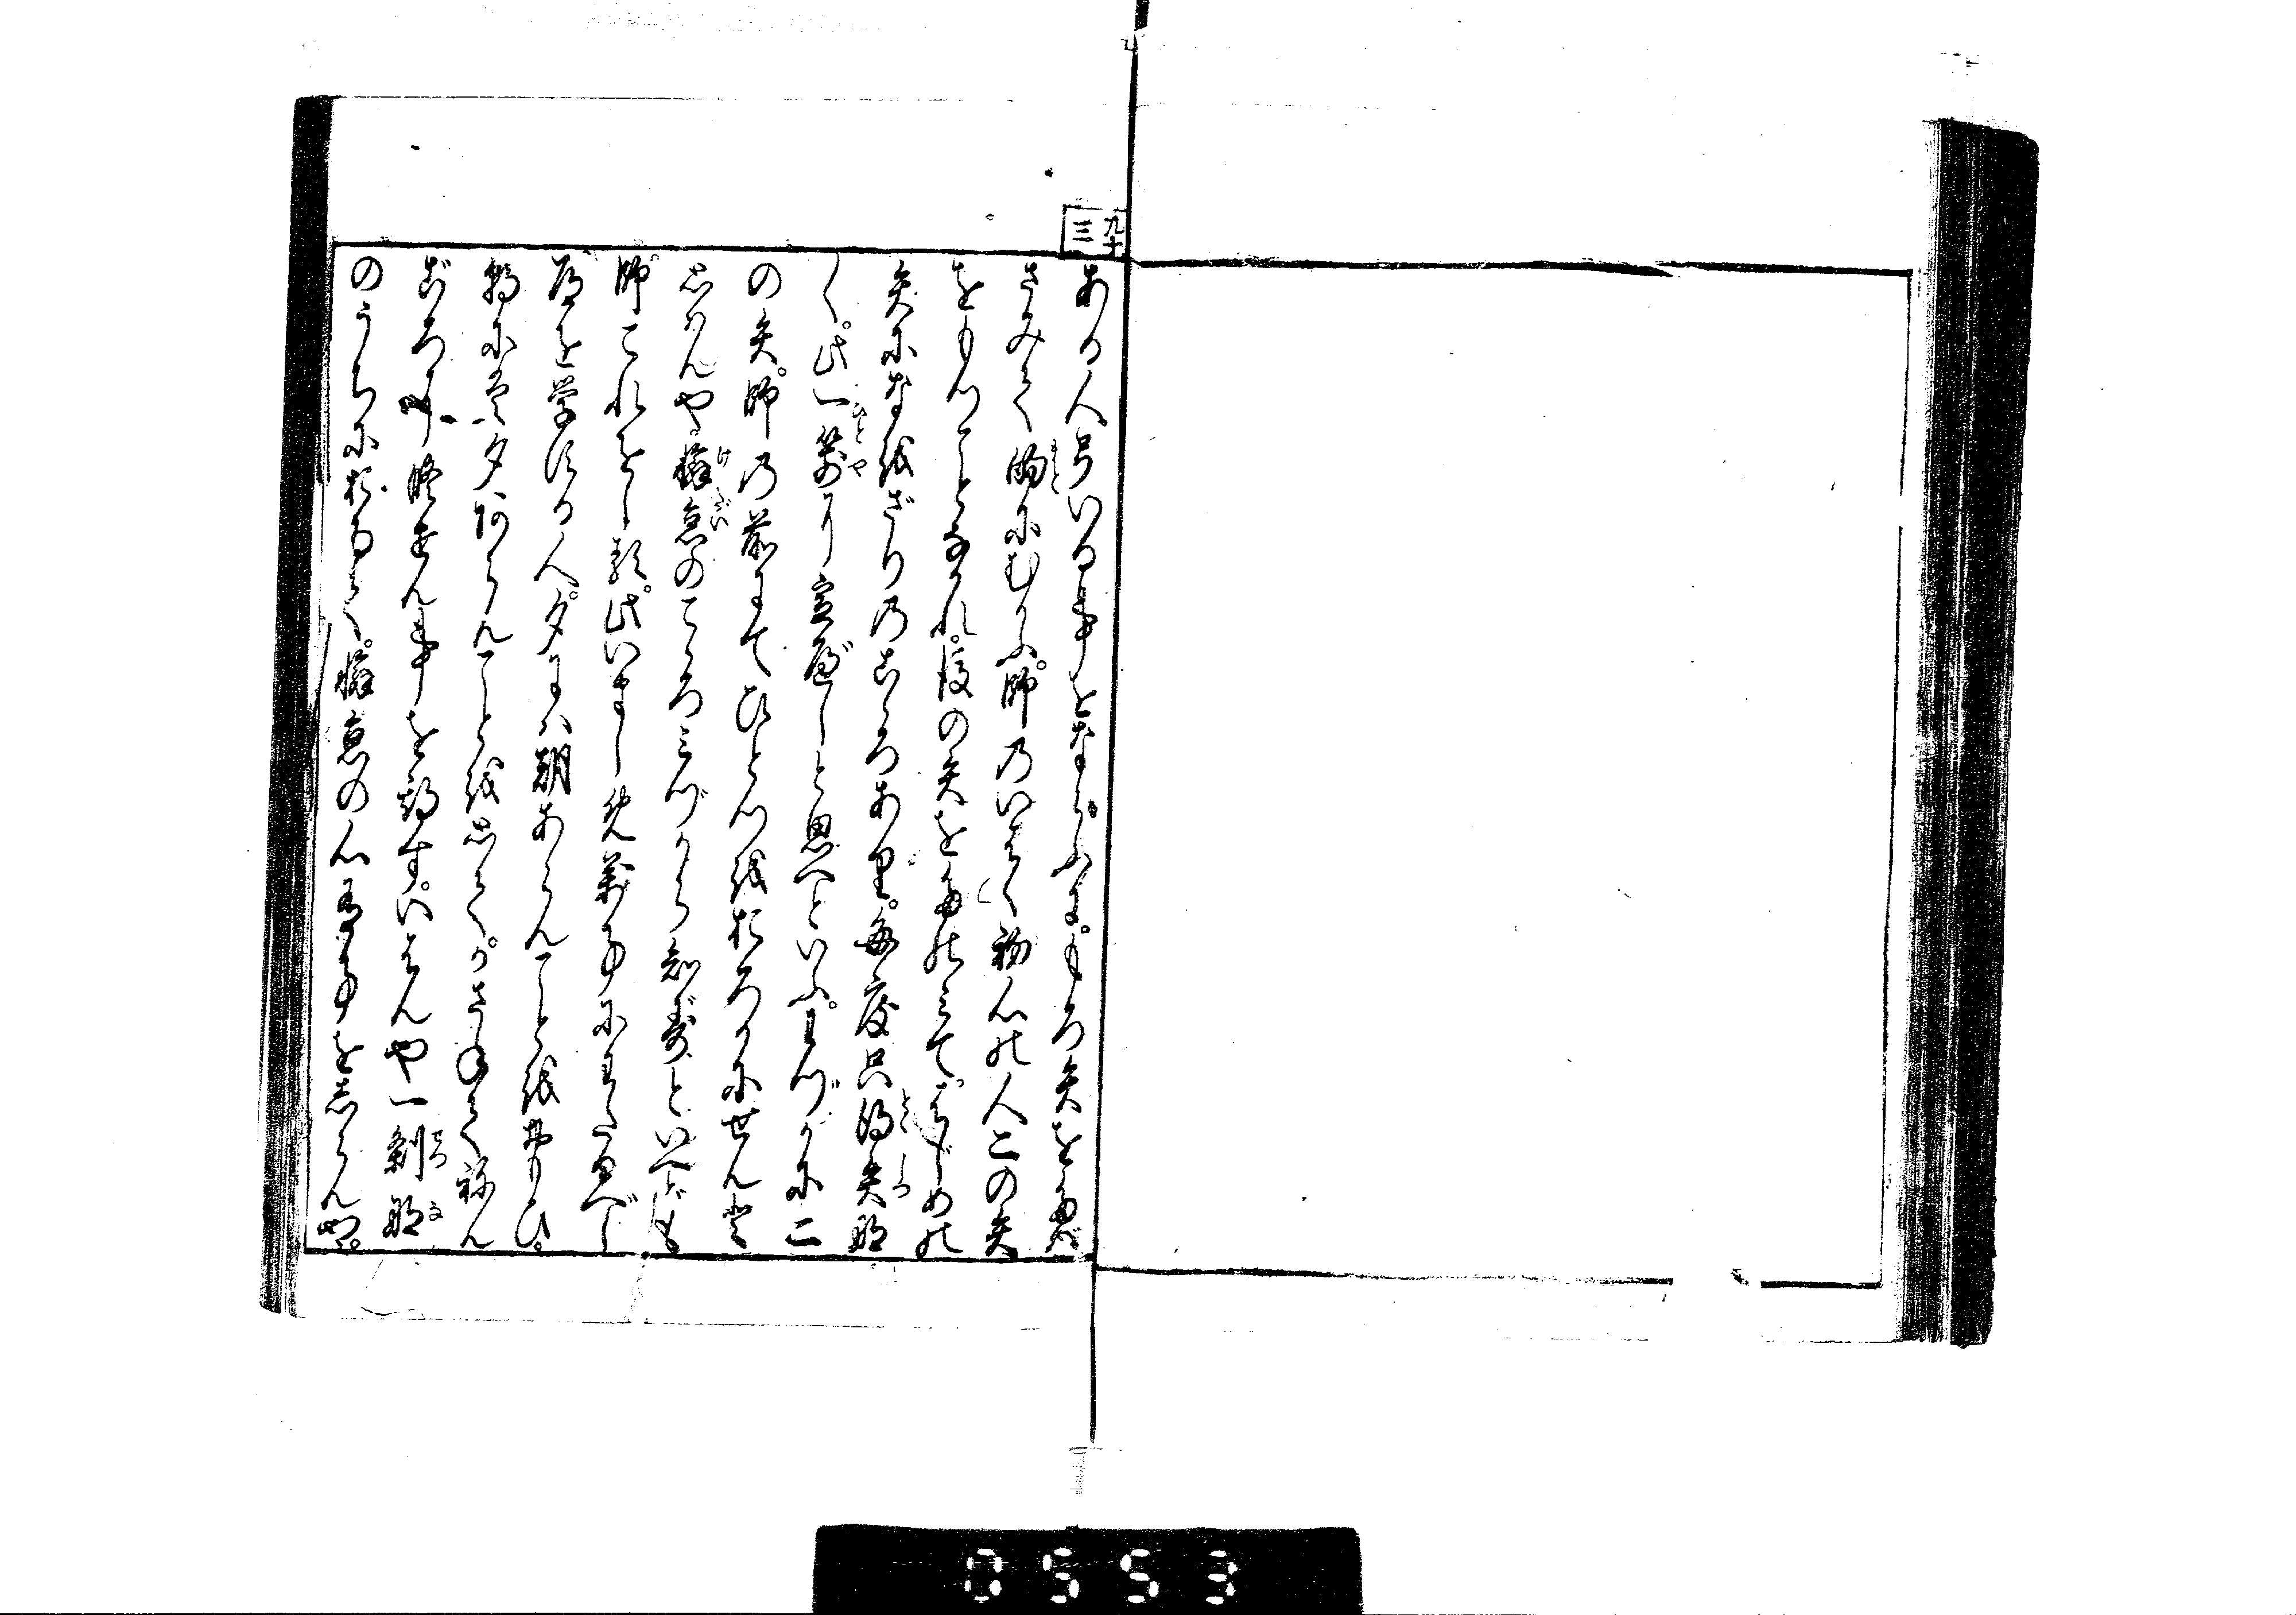 九十三
ある人弓いる事をならふに。もろ矢をたば
さみて的にむかふ。師のいはく初心の人二の矢
をもつことなかれ。後の矢をたのみて。はじめの
矢になをざりのこゝろあり。毎度只得失な
く。此一箭に定べしと思へといふ。わづかに二
の矢。師の前にてひとつをおろかにせんと
思はんや。懈怠のこゝろみづからしらずといへども
師これをしる。此いましめ万事にわたるべし
道を学する人。夕には朝あらんことをおもひ。
朝には夕あらんことを思ひて。かさねてねん
ごろに修せん事を期す。いはんや一刹那
のうちにおゐて。懈怠の心有事をしらんや。
0553